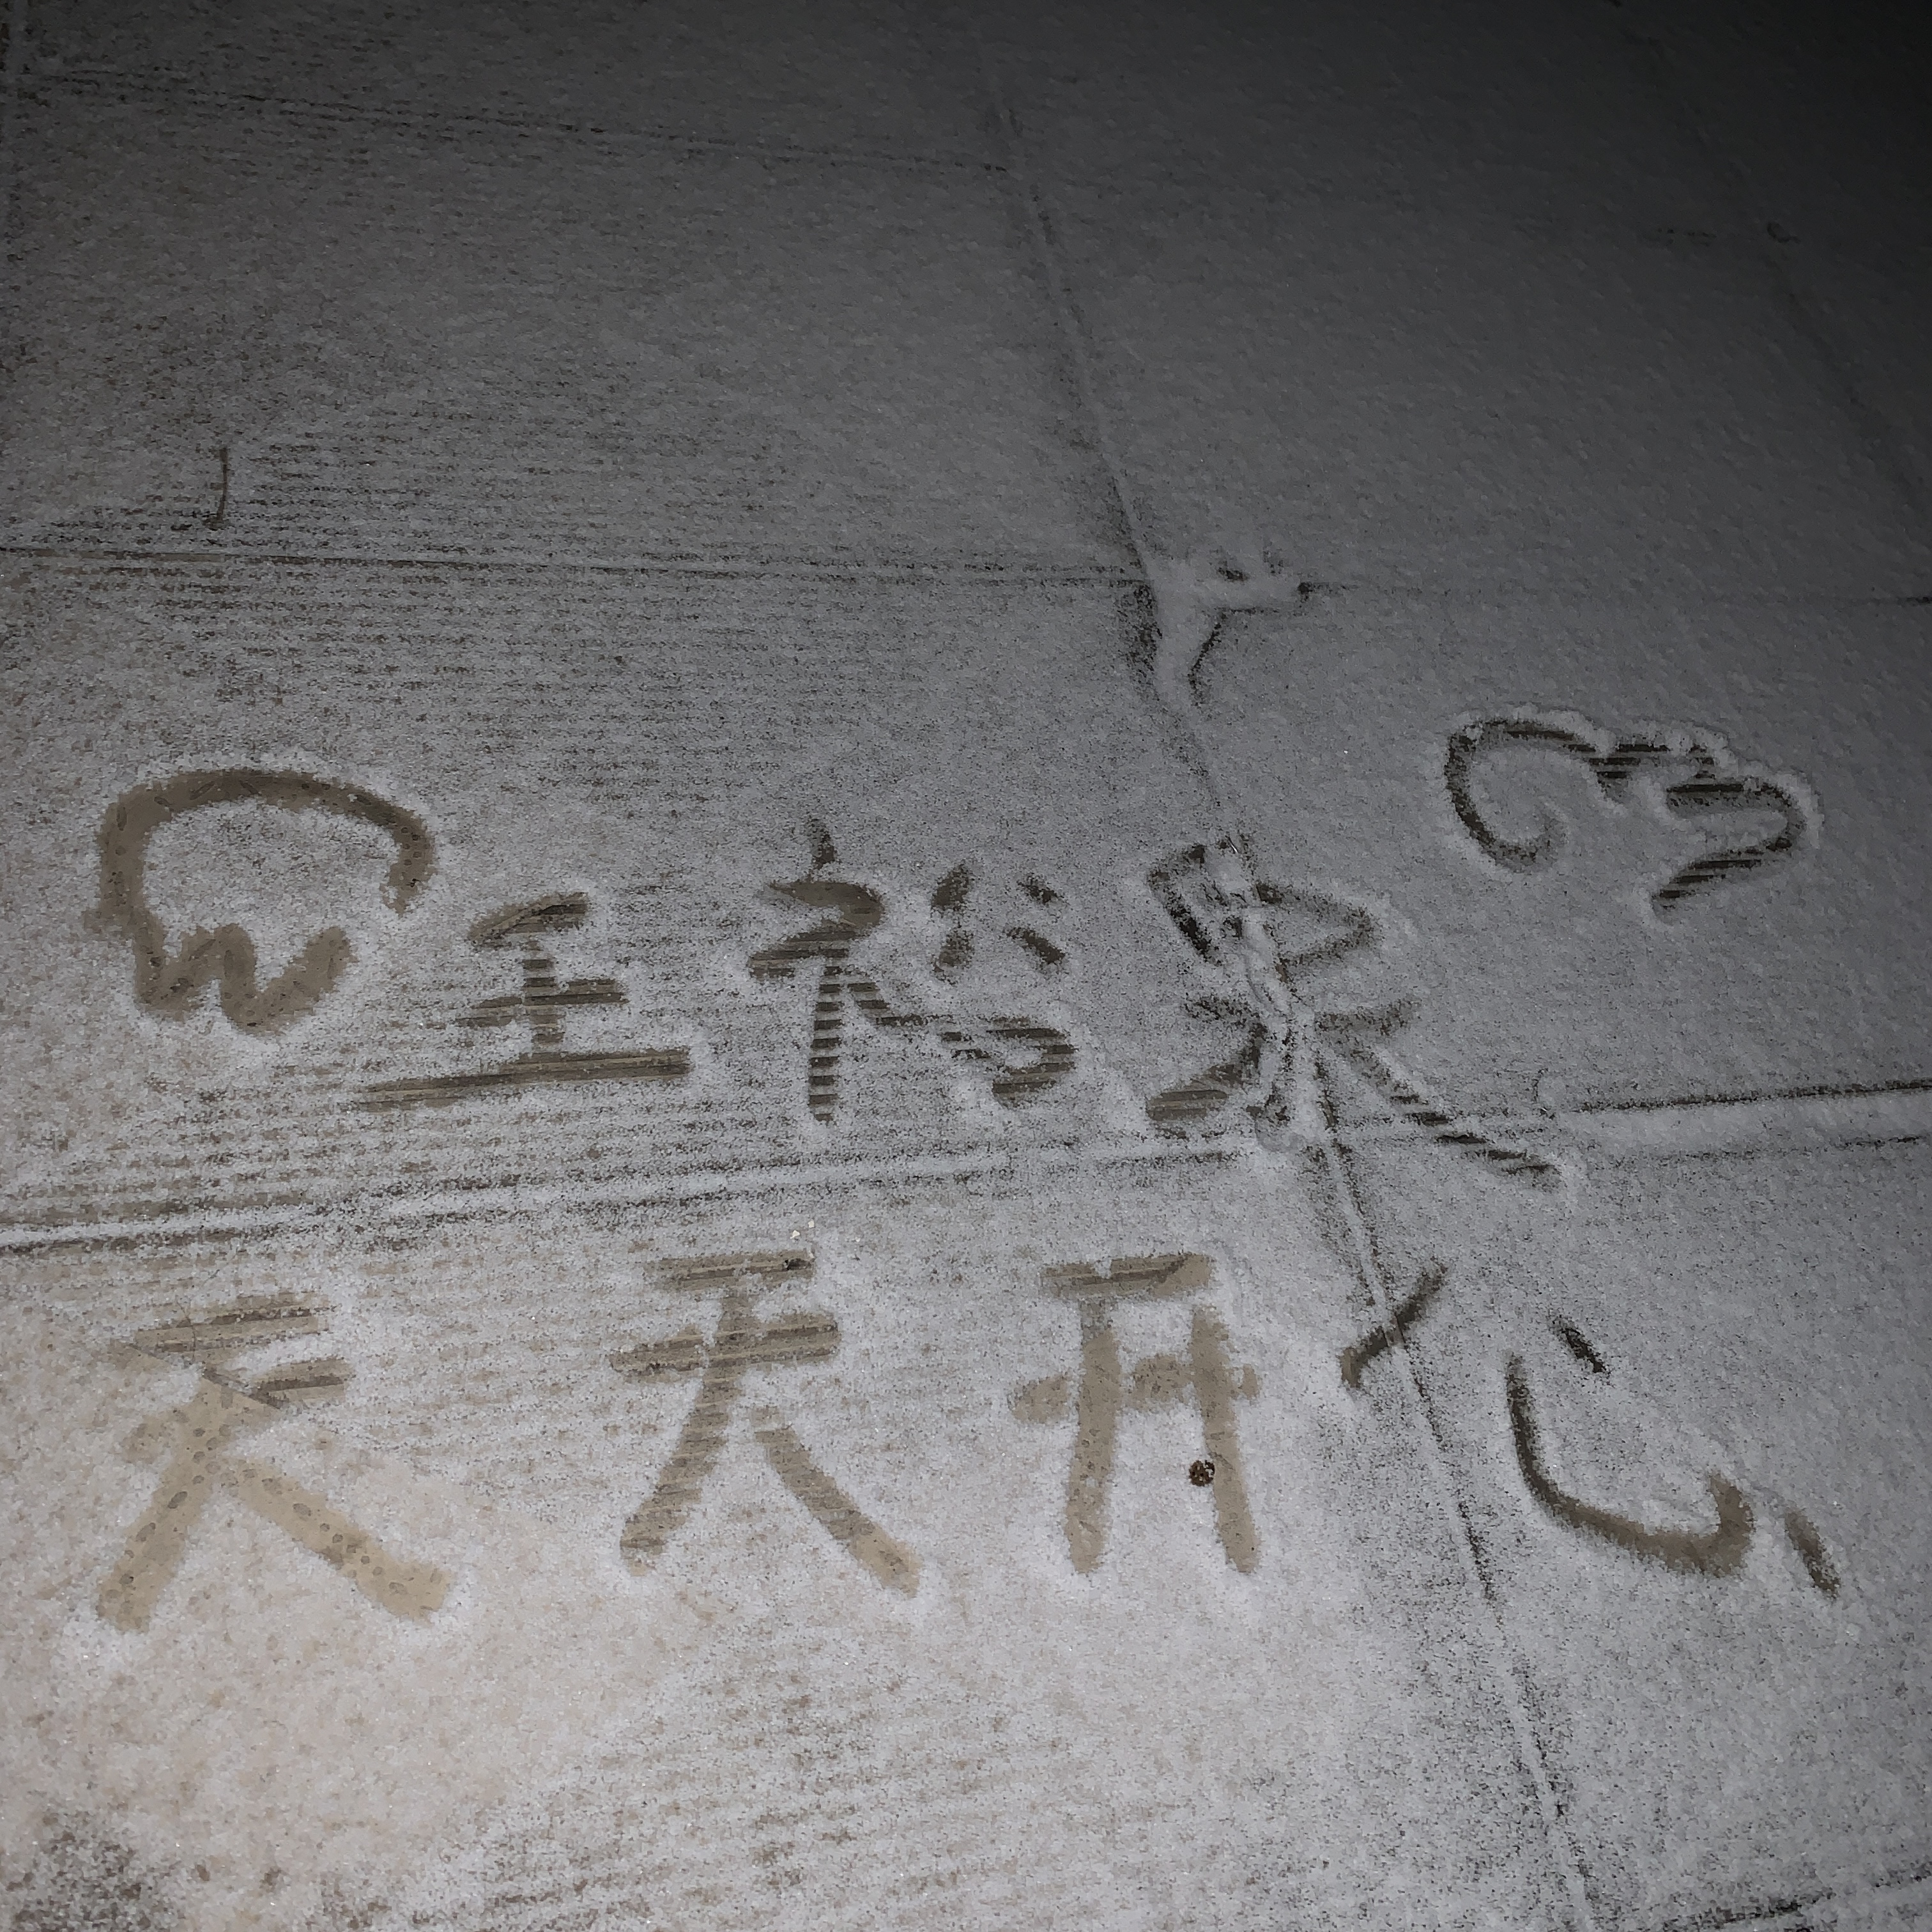 王裕果
天天开心